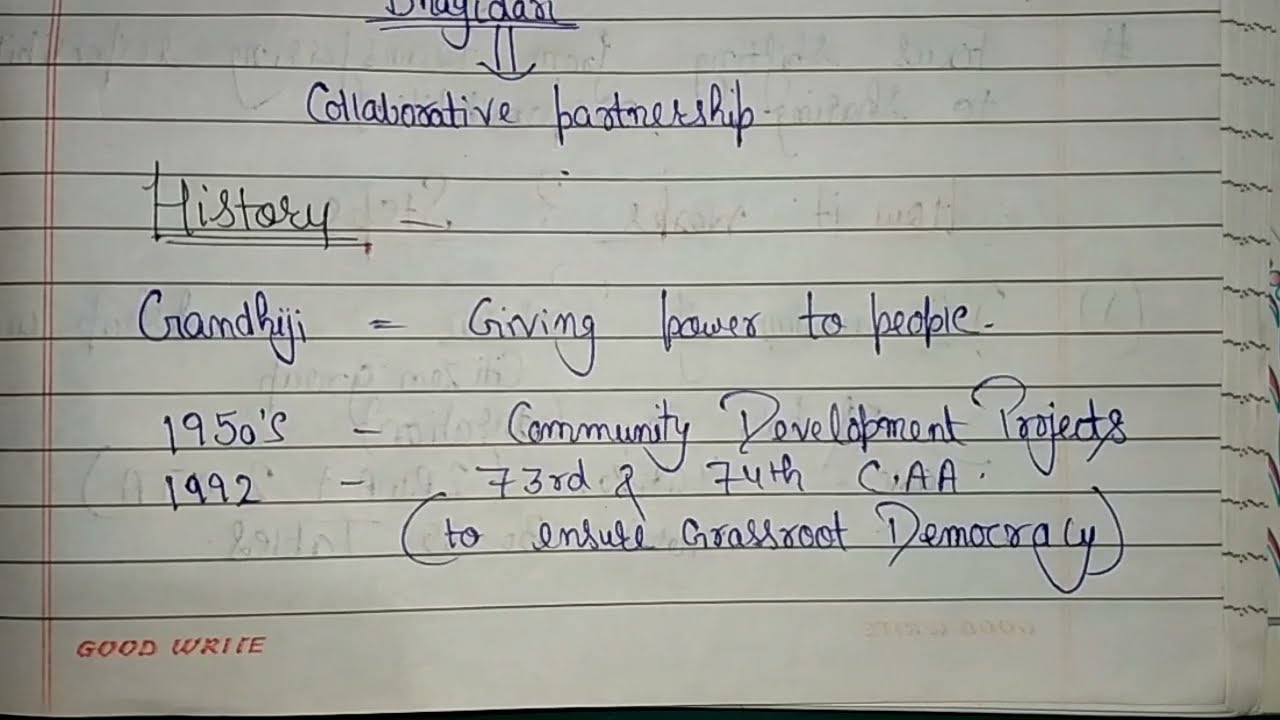 Bhagidari
Collaborative partnership.
History -
Gandhiji = Giving power to people.
1950's - Community Development Projects
1992 - 73rd & 74th C.AA.
(to ensure Grassroot Democracy)
GOOD WRITE